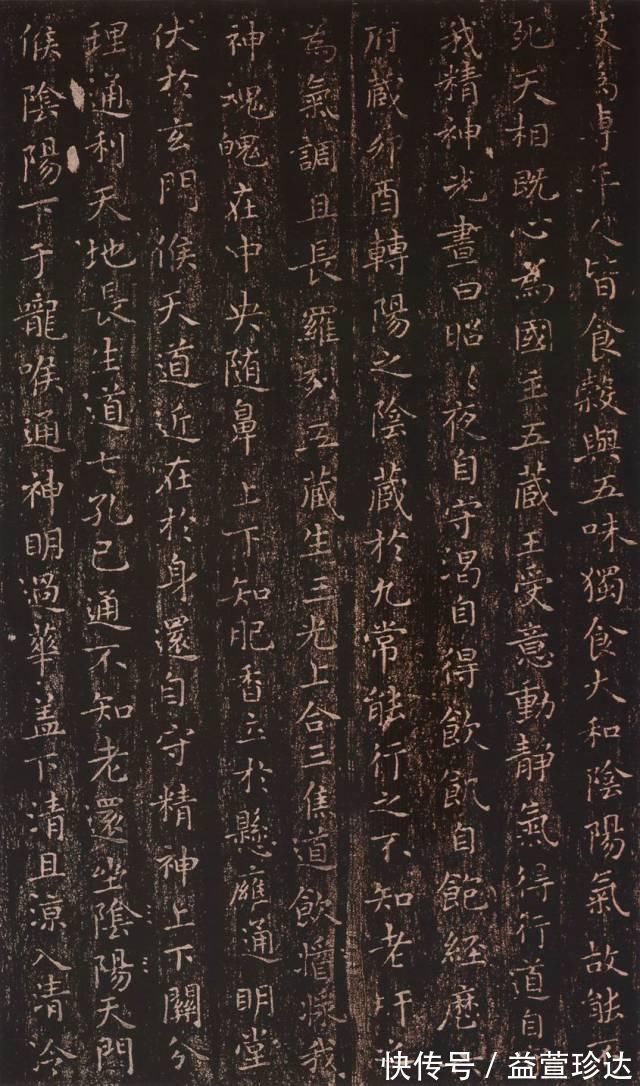 為專年人皆食穀與五味獨食大和陰陽氣故能不
死天相既心為國主五藏王受意動靜氣得行道自
我精神光晝日昭々夜自守渴自得飲飢自飽經歷
府藏卯酉轉陽之陰藏於九常能行之不知老肝
為氣調且長羅列五藏生三光上合三焦道飲醬漿我
神魂魄在中央随鼻上下知肥香立於懸雍通明堂
伏於玄門候天道近在於身還自守精神上下關分
理通利天地長生道七孔已通不知老還坐陰陽天門
候陰陽下于嚨喉通神明過華盖下清且涼入清冷
快传号／益萱珍达